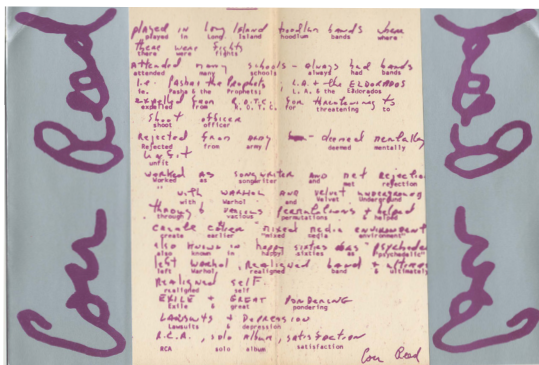 Lou Reed
played in Long Island hoodlum bands where
played Long Island hoodlum bands where
there were fights
there were fights
Attended many schools - always had bands
attended many schools always had bands
I.e. Pasha & the Prophets, L.A. + the ELDORADOS
ie. Pasha & the Prophets; L. A. & the Eldorados
expelled from R.O.T.C. for threatening to
expelled from R. O. T. C. for threatening to
shoot officer
shoot officer
Rejected from army - deemed mentally
Rejected from army deemed mentally
unfit
unfit
worked as songwriter and met rejection
Worked as songwriter and met rejection
" with WARHOL AND Velvet Underground
with Warhol and Velvet Underground
through various permutations + helped
through vacious permutations & helped
create earlier mixed media environment
create earlier "mixed media environment"
also known in happy sixties as "Psychedelic
also known in happy sixties as "Psychedelic"
left Warhol, Realigned band + ultimately
left Warhol, realigned band & ultimately
Realigned self.
realigned self
EXILE + GREAT PONDERING
Exile & great pondering
LAWSUITS + Depression
Lawsuits & depression
R.C.A., solo album, satisfaction
RCA solo album satisfaction
Lou Reed
Lou Reed